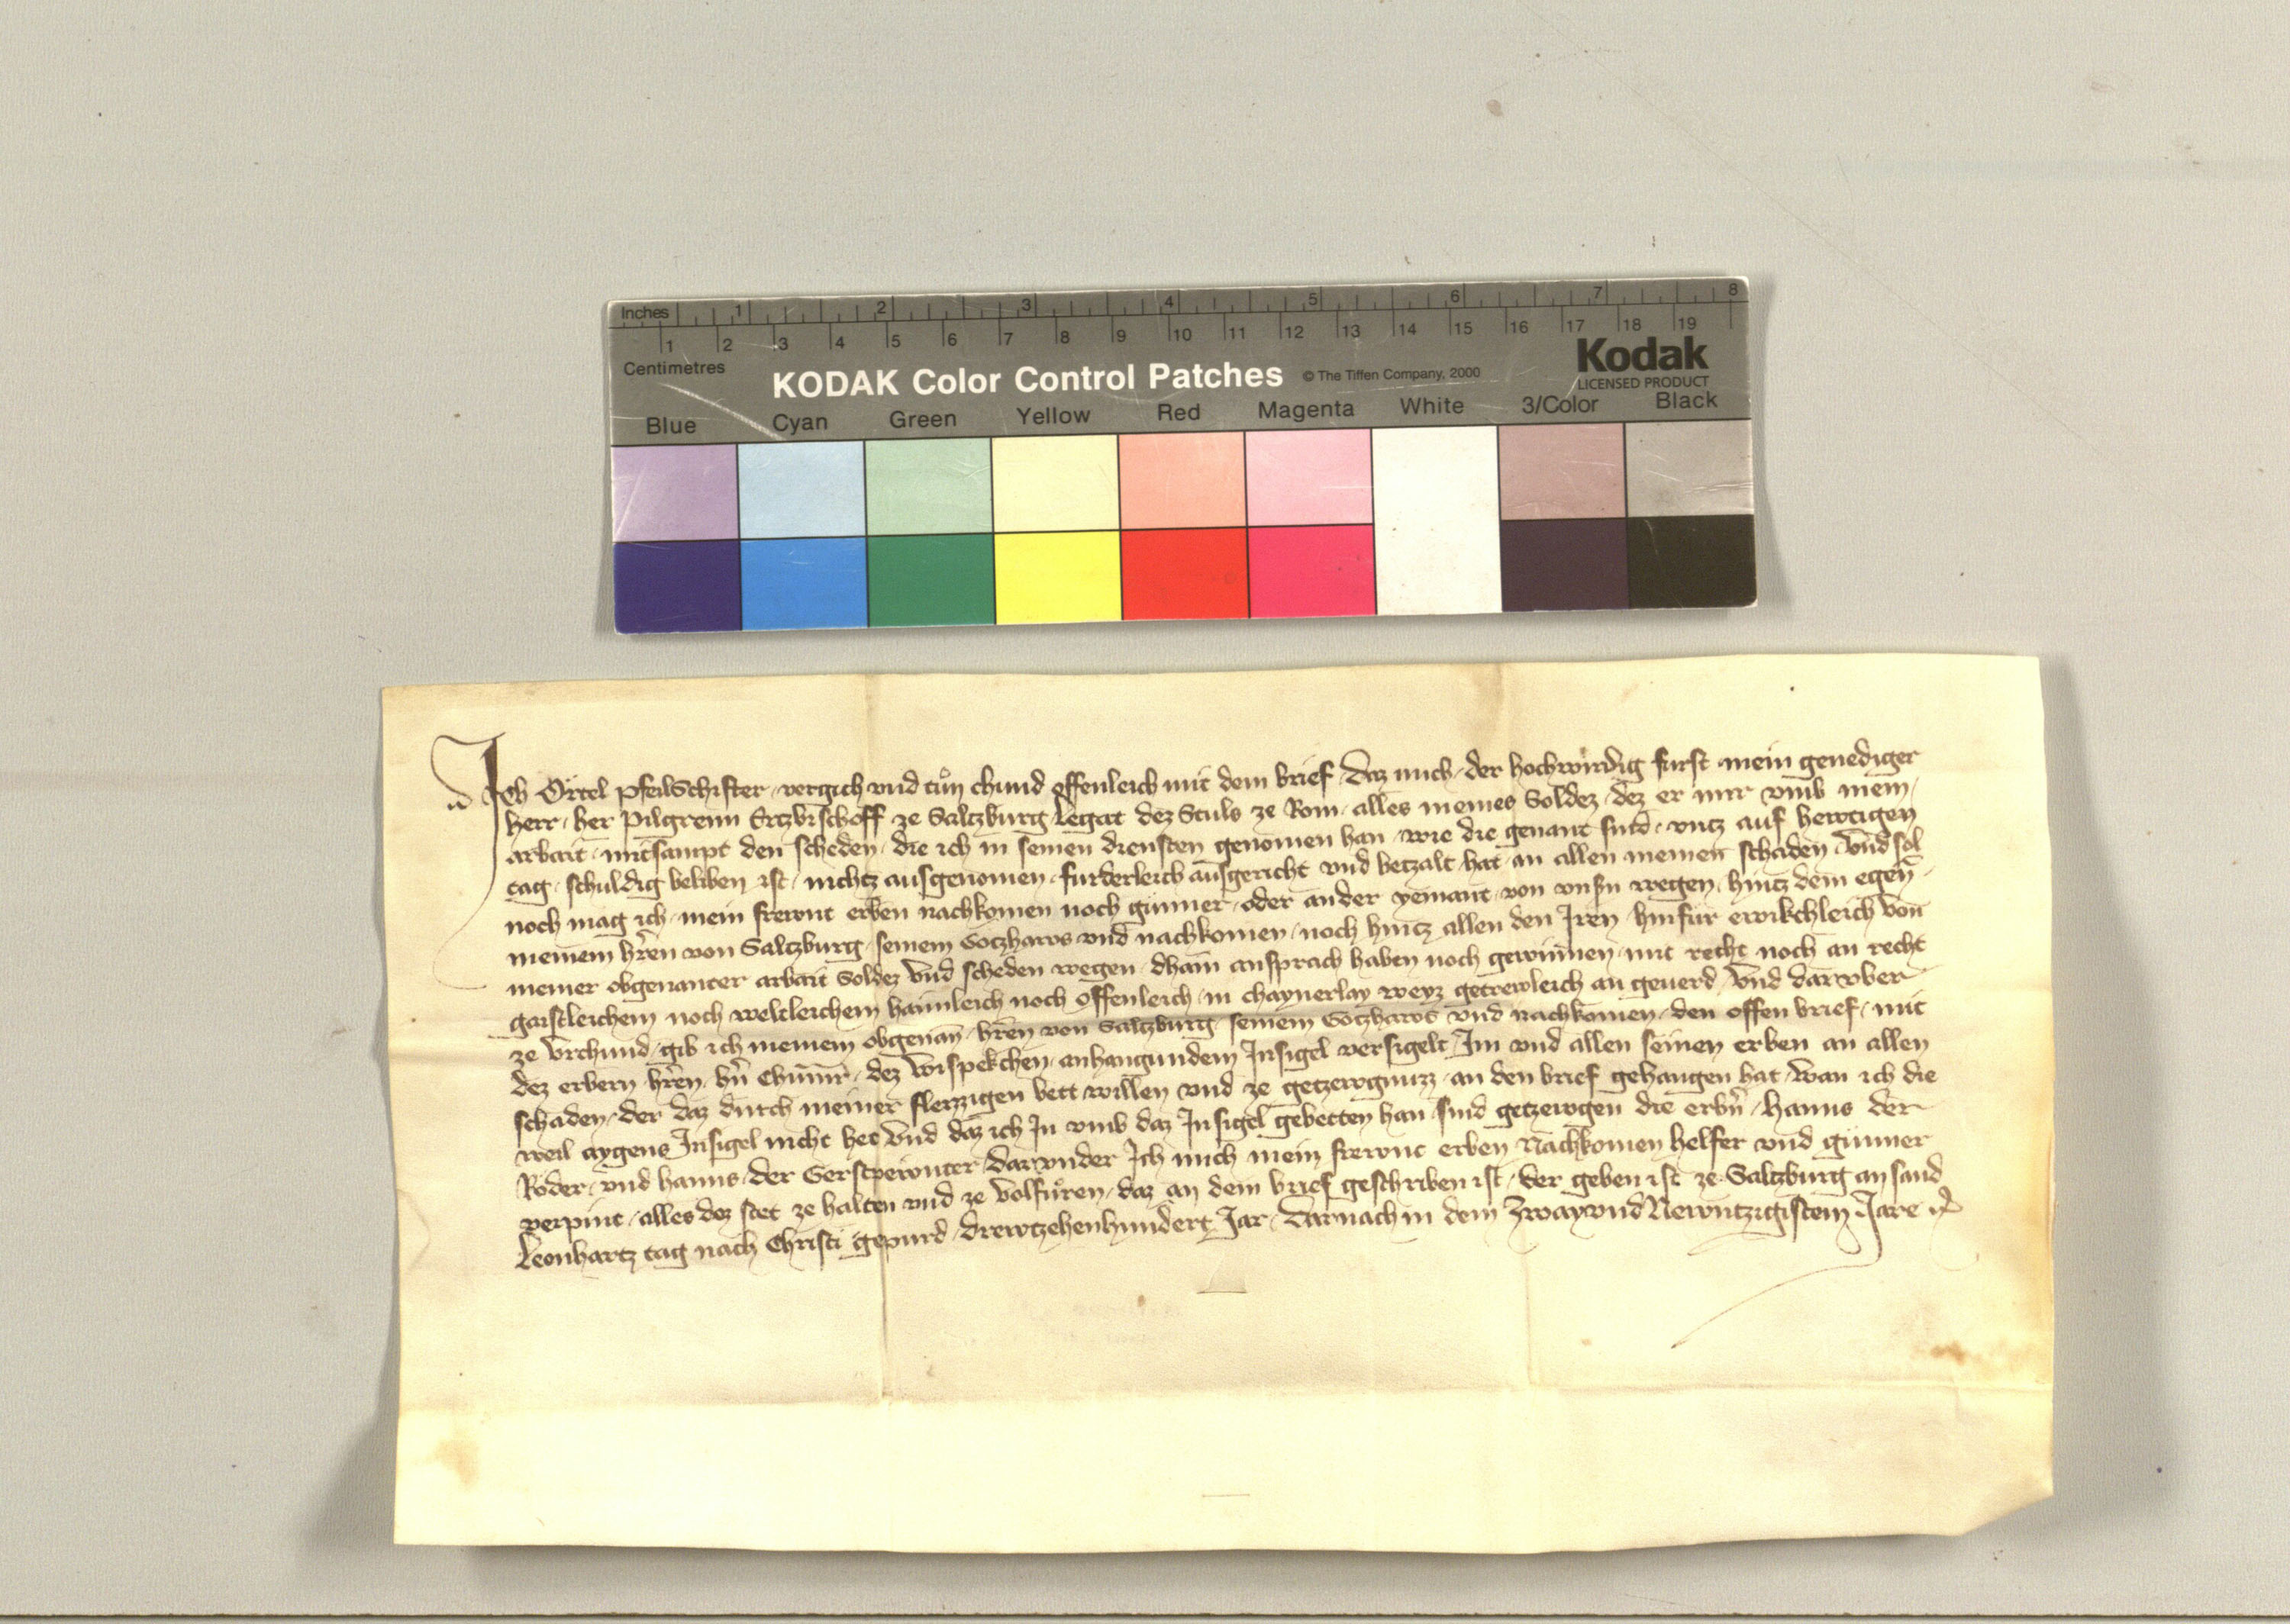 Inches 1 2 3 4 5 6 7 8
1 2 3 4 5 6 7 8 9 10 11 12 13 14 15 16 17 18 19
Centimetres
KODAK Color Control Patches © The Tiffen Company, 2000 Kodak
LICENSED PRODUCT
Blue Cyan Green Yellow Red Magenta White 3/Color Black
Ich Örtel PfeilSchifter vergich vnd tůn chund offenleich mit dem brief Daz mich der hochwirdig furst mein genediger
herr her Pilgreim Ertzbischoff ze Saltzburg Legat dez Stuls ze Rom alles meines Soldez dez er mir vmb mein
arbait mitsampt den scheden die ich in seinen diensten genomen han wie die genant sind vntz auf hewtigen
tag schuldig beliben ist nichtz ausgenomen furderleich ausgericht vnd betzalt hat an allen meinen schaden Vnd sol
noch mag ich mein frewnt erben nachkomen noch gunner oder ander yemant von vnsn wegen hintz dem egen̄
meinem hr̄en von Saltzburg seinem Gotzhaws vnd nachkomen noch hintz allen den Iren hinfur ewikchleich von
meiner obgenanter arbait Soldez Vnd scheden wegen dhain ansprach haben noch gewinnen mit recht noch an recht
gaistleichem noch weltleichem haimleich noch offenleich in chaynerlay weyz getrewleich an geuerd Vnd daruber
ze Vrchund gib ich meinem obgenan̄ hr̄en von Saltzburg seinem Gotzhaws vnd nachkomen den offen brief mit
dez erbern hr̄en hn̄ Chunr̄ dez Wispekchen anhangundem Insigel versigelt Im vnd allen seinen erben an allen
schaden der daz durch meiner fleizzigen bett willen vnd ze getzewgnuzz an den brief gehangen hat wan ich die
weil aygens Insigel nicht het Vnd daz ich In vmb daz Insigel gebetten han sind getzewgen die erbn̄ Hanns der
Röder vnd Hanns der Gerstpewnter Darvnder Ich mich mein frewnt erben Nachkomen helfer vnd gunner
verpint alles dez stet ze halten vnd ze volfůren daz an dem brief geschriben ist der geben ist ze Saltzburg an sand
Leonhartz tag nach Christi gepurd drewtzehenhundert Jar Darnach in dem Zwayvnd Newntzigistem Jare